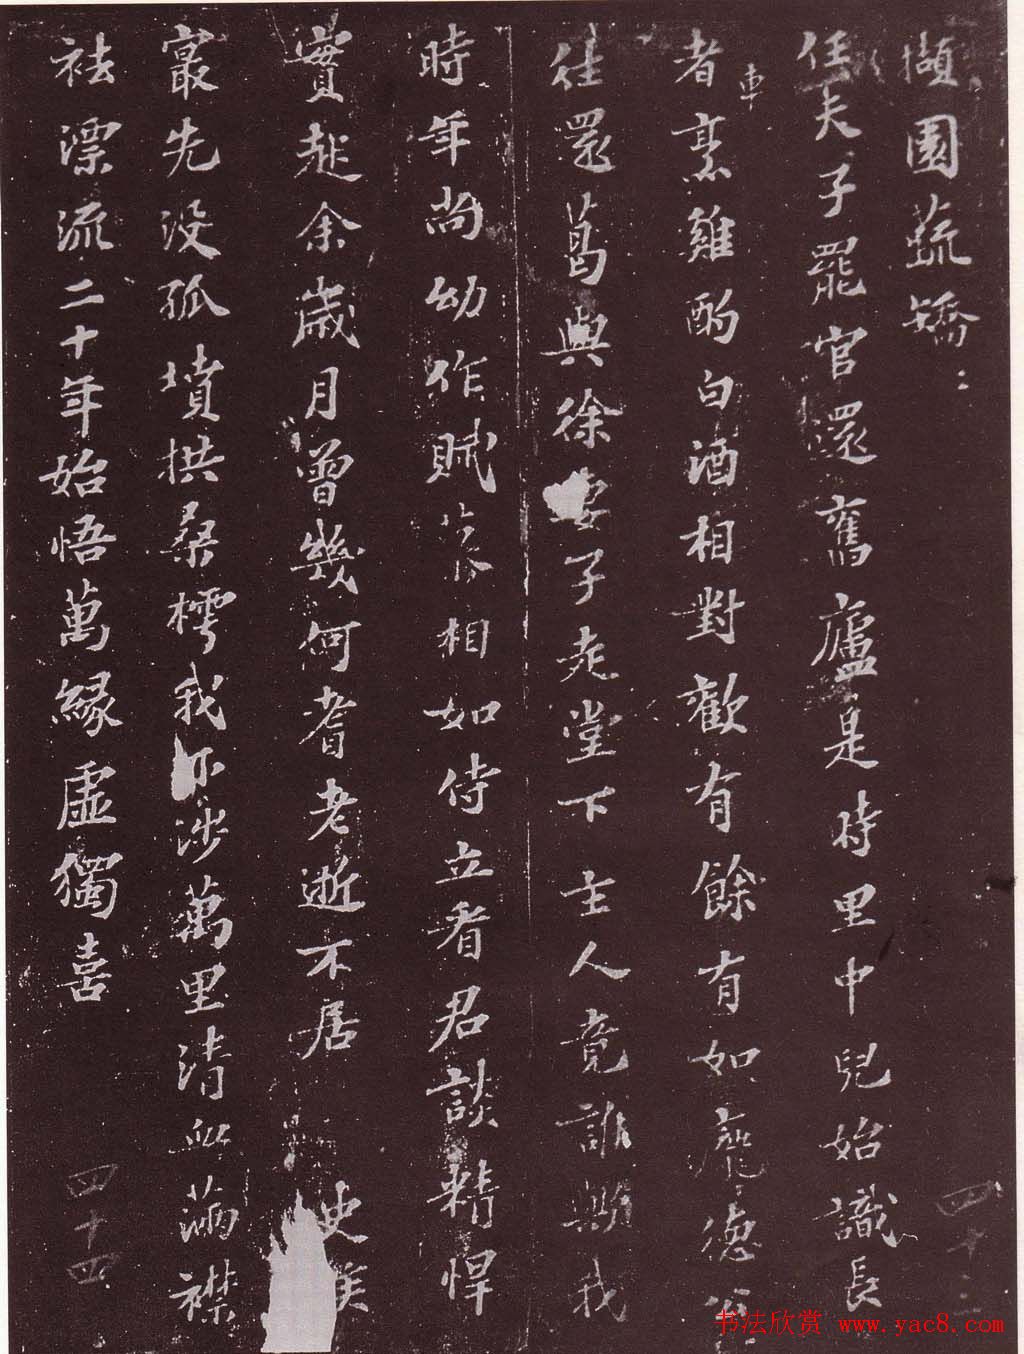 擷園蔬矯:
任夫子罷官還舊廬是時里中兒始識長
者車烹雞酌白酒相對歡有餘有如龐德公
往還葛與徐妻子走堂下主人竟誰歟我
時年尚幼作賦慕相如侍立看君談精悍
實起余歲月曾幾何耆老逝不居史侯
最先没孤墳拱桑樗我亦涉萬里清血滿襟
袪漂流二十年始悟萬緣虛獨喜
四十三
四十四
书法欣赏 www.yac8.com